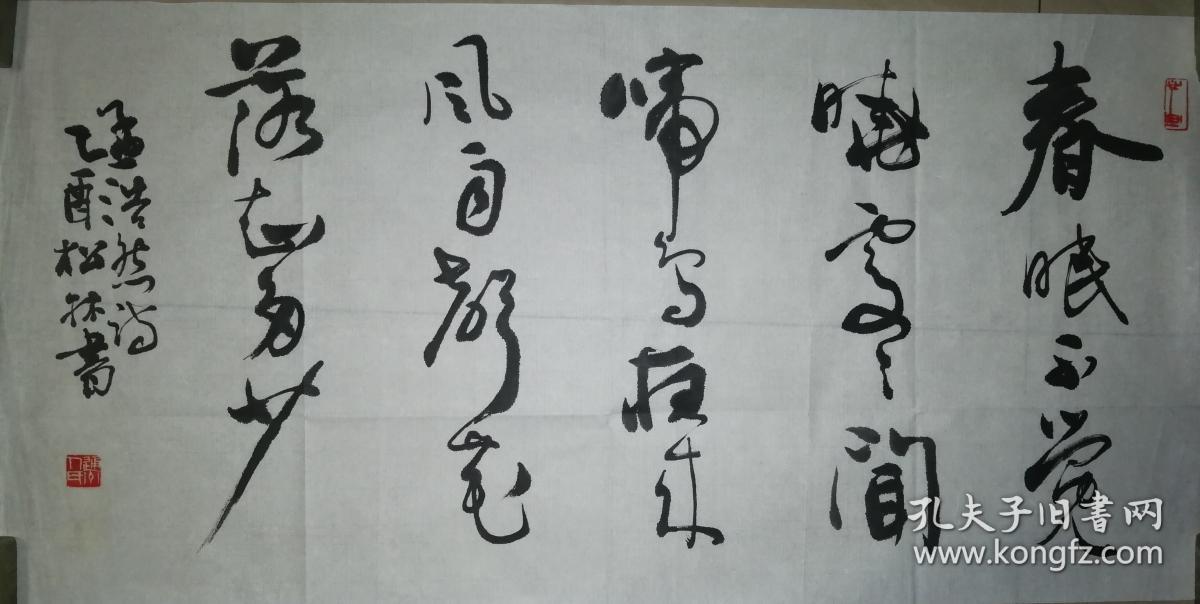 春眠不觉
曉處々闻
啼鸟夜来
风雨聲花
落知多少
孟浩然诗
乙酉松林書
孔夫子旧书网
www.kongfz.com